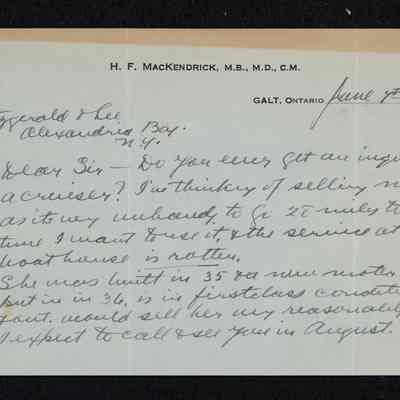 H. F. MacKendrick, M.B., M.D., C.M.
Galt, Ontario June 4th
zgerald & Lee
Alexandria Bay.
N.Y.
Dear Sir — Do you ever get an inqu
a cruiser? I'm thinking of selling m
as its very unhandy to go 25 miles to
time I want to use it, & the service at
boathouse is rotten.
She was built in 35 & a new motor
put in in 36, is in first class condit
I expect to call & see you in August.
would sell her very reasonabl